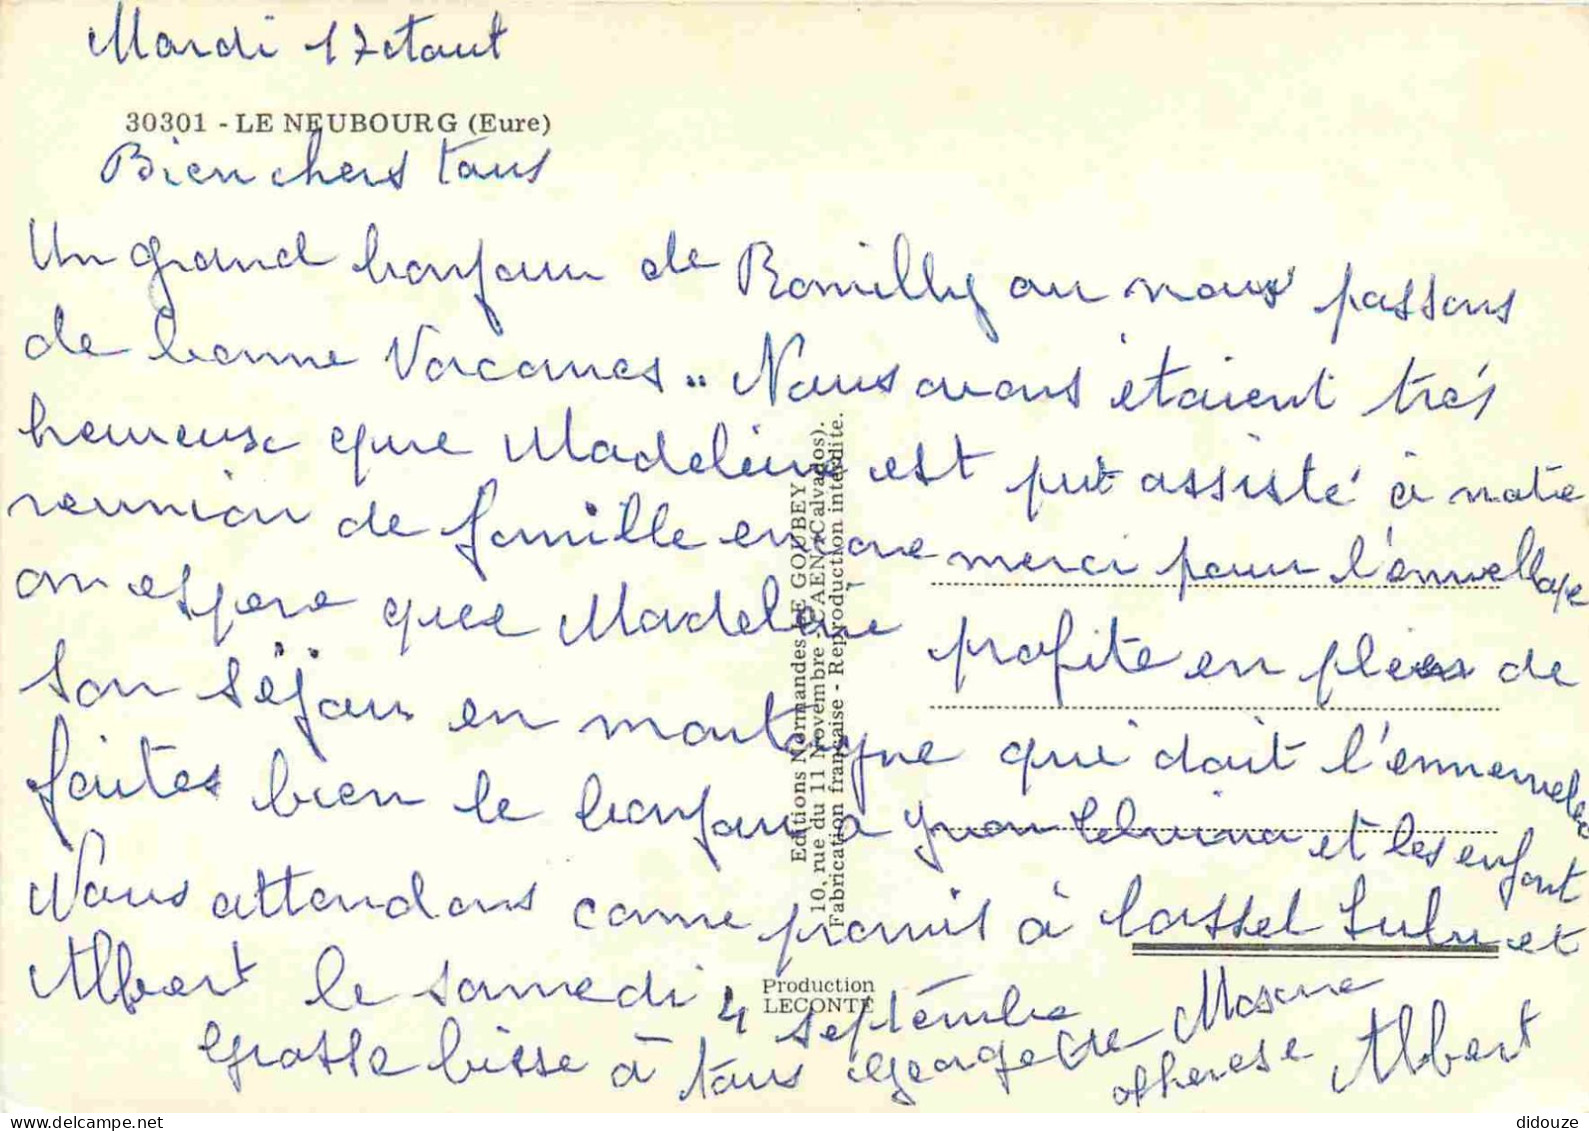 Mardi 17 etaout
30301 - LE NEUBOURG (Eure)
Bien chers tous
Un grand bonjour de Romilly ou nous passons
de bonne Vacances .. Nous avons étaient très
heureuse que Madeleine est put assisté à notre
reunion de famille encore merci pour l'envellope
on espere que Madeleine profite en plein de
son séjour en montagne qui doit l'
faites bien le bonjour a et les enfant
Nous attendons come promis à Cassel Lulu et
Albert le samedi 4 septembre
Grosse bisse à tous Georgette Maxime
therese Albert
Editions Normandes LE GOUBEY
10, rue du 11 Novembre - CAEN (Calvados).
Fabrication française - Reproduction interdite.
Production
LECONTE
didouze